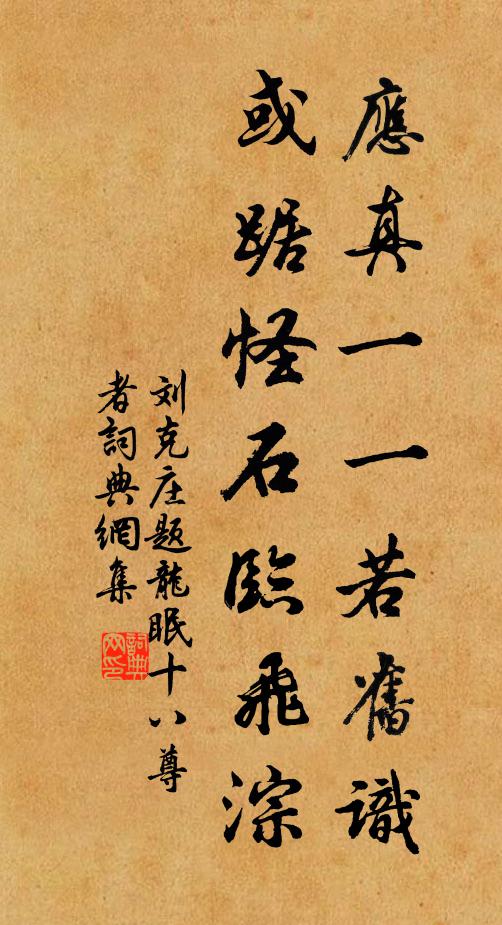 應真一一若舊識
或踞怪石臨飛淙
刘克庄题龍眠十八尊
者詞典網集
詞典網印